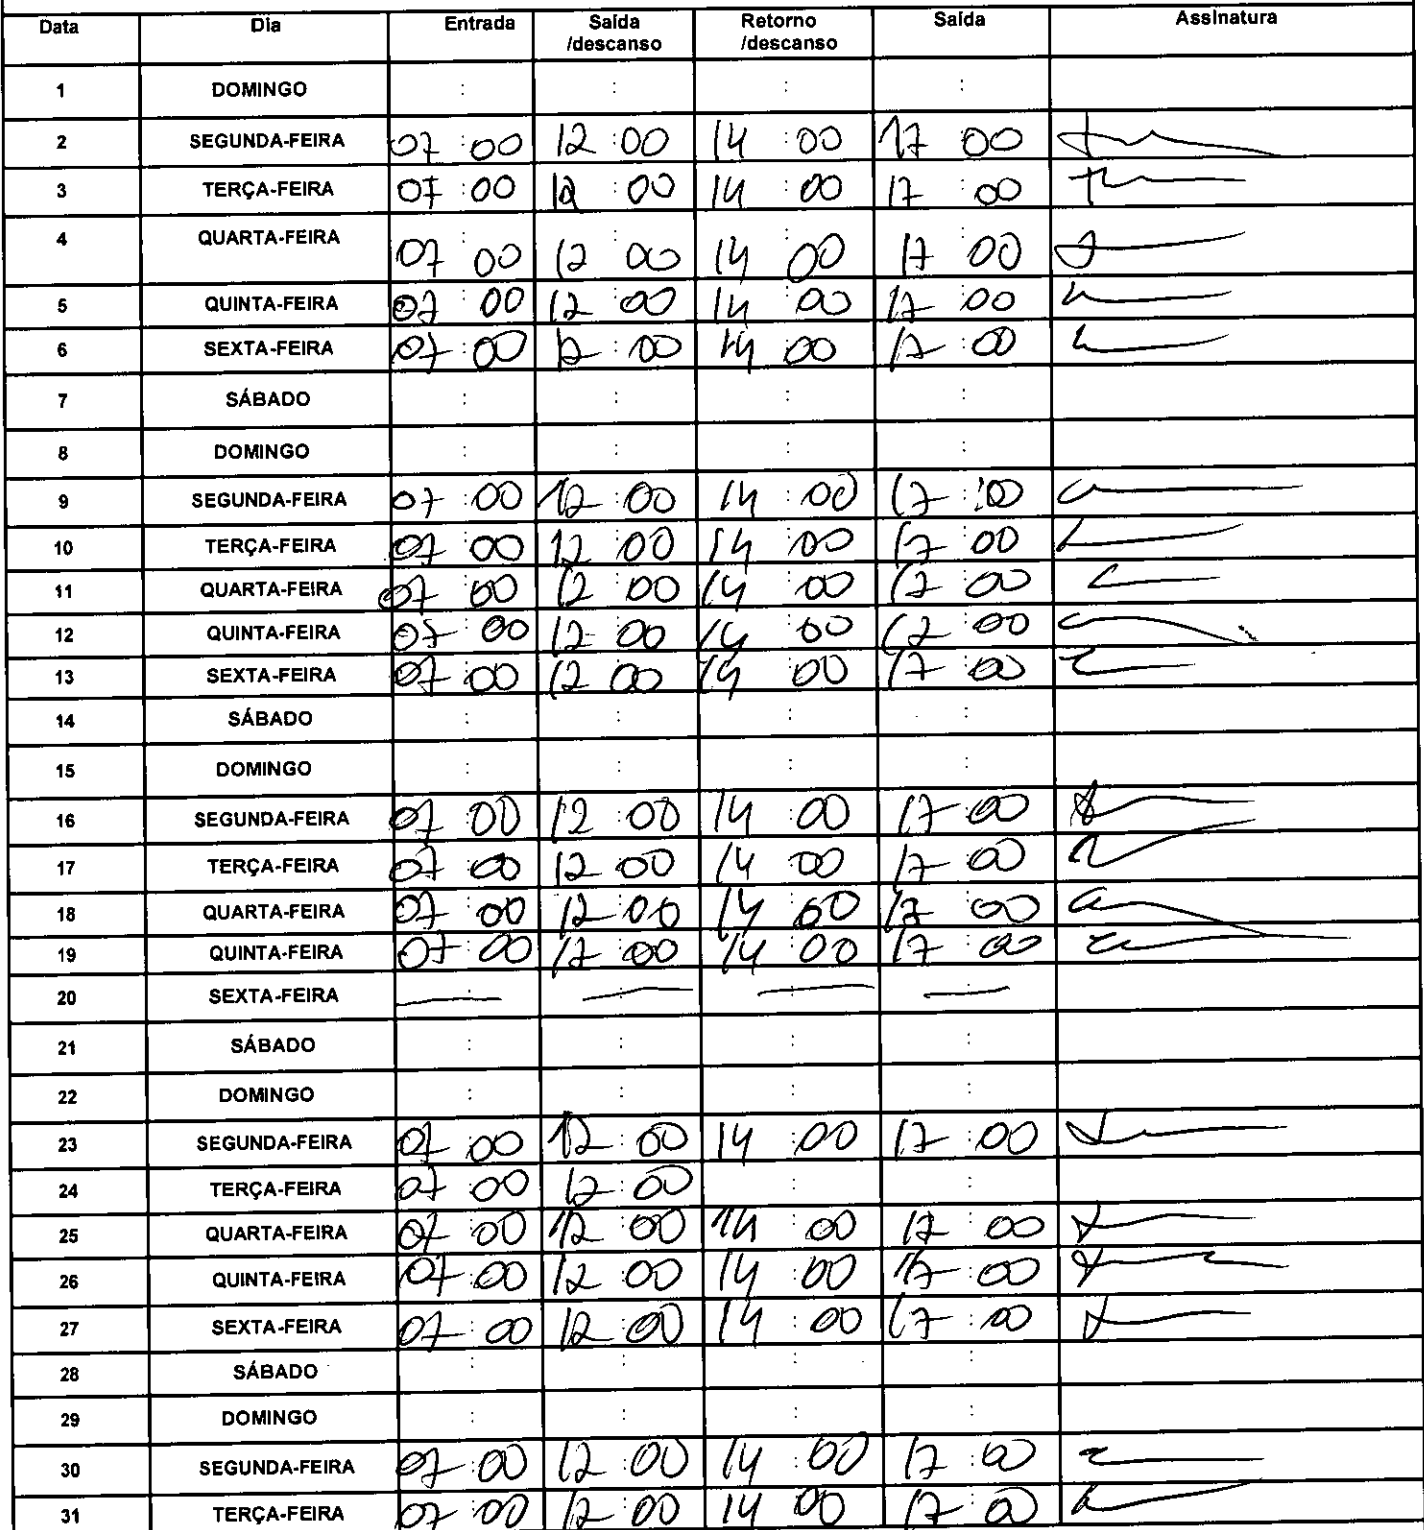 Data Dia Entrada Saída /descanso Retorno /descanso Saída Assinatura
1 DOMINGO : : : :
2 SEGUNDA-FEIRA 07:00 12:00 14:00 17:00
3 TERÇA-FEIRA 07:00 12:00 14:00 17:00
4 QUARTA-FEIRA 07:00 12:00 14:00 17:00
5 QUINTA-FEIRA 07:00 12:00 14:00 17:00
6 SEXTA-FEIRA 07:00 12:00 14:00 17:00
7 SÁBADO : : : :
8 DOMINGO : : : :
9 SEGUNDA-FEIRA 07:00 12:00 14:00 17:00
10 TERÇA-FEIRA 07:00 12:00 14:00 17:00
11 QUARTA-FEIRA 07:00 12:00 14:00 17:00
12 QUINTA-FEIRA 07:00 12:00 14:00 17:00
13 SEXTA-FEIRA 07:00 12:00 14:00 17:00
14 SÁBADO : : : :
15 DOMINGO : : : :
16 SEGUNDA-FEIRA 07:00 12:00 14:00 17:00
17 TERÇA-FEIRA 07:00 12:00 14:00 17:00
18 QUARTA-FEIRA 07:00 12:00 14:00 17:00
19 QUINTA-FEIRA 07:00 12:00 14:00 17:00
20 SEXTA-FEIRA — — — —
21 SÁBADO : : : :
22 DOMINGO : : : :
23 SEGUNDA-FEIRA 07:00 12:00 14:00 17:00
24 TERÇA-FEIRA 07:00 12:00 : :
25 QUARTA-FEIRA 07:00 12:00 14:00 17:00
26 QUINTA-FEIRA 07:00 12:00 14:00 17:00
27 SEXTA-FEIRA 07:00 12:00 14:00 17:00
28 SÁBADO : : : :
29 DOMINGO : : : :
30 SEGUNDA-FEIRA 07:00 12:00 14:00 17:00
31 TERÇA-FEIRA 07:00 12:00 14:00 17:00